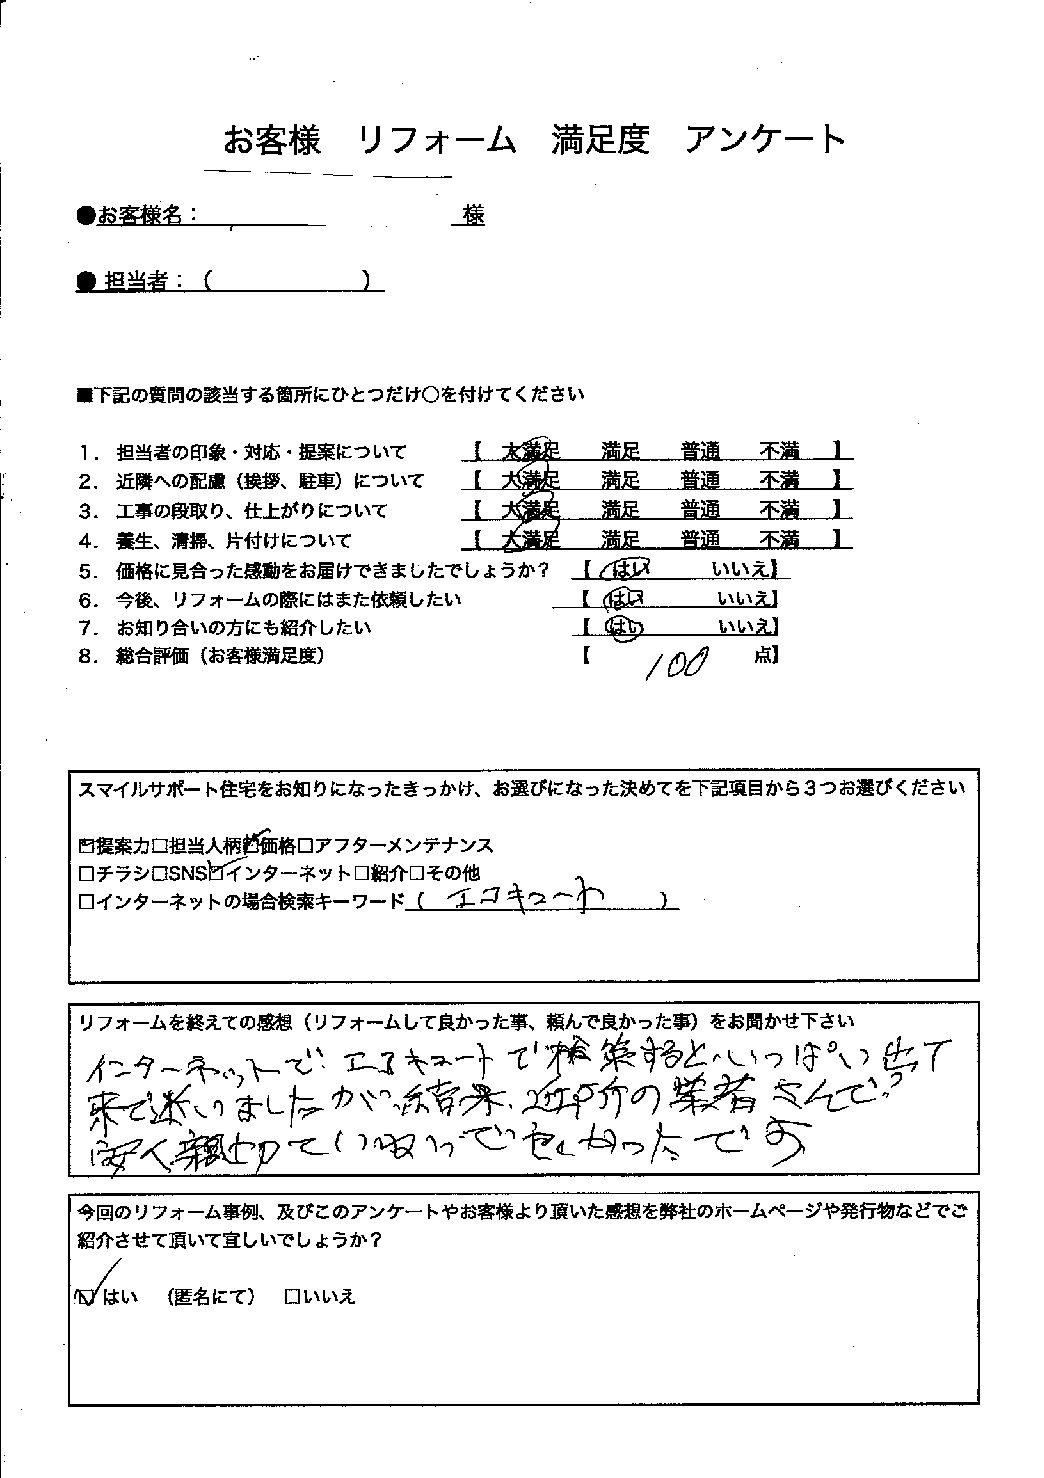 お客様　リフォーム　満足度　アンケート
●お客様名：　　　　　様
●担当者：（　　　　　）
■下記の質問の該当する箇所にひとつだけ○を付けてください
1．担当者の印象・対応・提案について　【　大満足　満足　普通　不満　】
2．近隣への配慮（挨拶、駐車）について　【　大満足　満足　普通　不満　】
3．工事の段取り、仕上がりについて　【　大満足　満足　普通　不満　】
4．養生、清掃、片付けについて　【　大満足　満足　普通　不満　】
5．価格に見合った感動をお届けできましたでしょうか？　【　はい　いいえ】
6．今後、リフォームの際にはまた依頼したい　【　はい　いいえ】
7．お知り合いの方にも紹介したい　【　はい　いいえ】
8．総合評価（お客様満足度）　【　100　点】
スマイルサポート住宅をお知りになったきっかけ、お選びになった決めてを下記項目から３つお選びください
☑提案力□担当人柄☑価格□アフターメンテナンス
□チラシ□SNS☑インターネット□紹介□その他
□インターネットの場合検索キーワード（　エコキュート　）
リフォームを終えての感想（リフォームして良かった事、頼んで良かった事）をお聞かせ下さい
インターネットで、エコキュートで検索するといっぱい出て
来て迷いましたが、結果、近所の業者さんで
安く親切で
かったです
今回のリフォーム事例、及びこのアンケートやお客様より頂いた感想を弊社のホームページや発行物などでご
紹介させて頂いて宜しいでしょうか？
☑はい　（匿名にて）　□いいえ